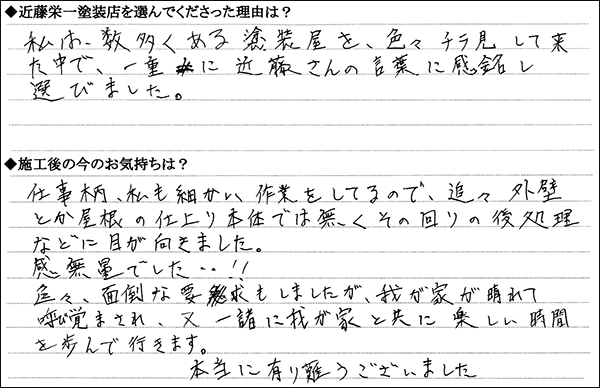 ◆近藤栄一塗装店を選んでくださった理由は？
私は、数多くある塗装屋を、色々チラ見して来
た中で、一重に近藤さんの言葉に感銘し
選びました。
◆施工後の今のお気持ちは？
仕事柄、私も細かい作業をしてるので、追々外壁
とか屋根の仕上り本体では無くその回りの後処理
などに目が向きました。
感無量でした・・!!
色々、面倒な要求もしましたが、我が家が晴れて
呼び覚まされ、又一諸に我が家と共に楽しい時間
を歩んで行きます。
本当に有り難うございました